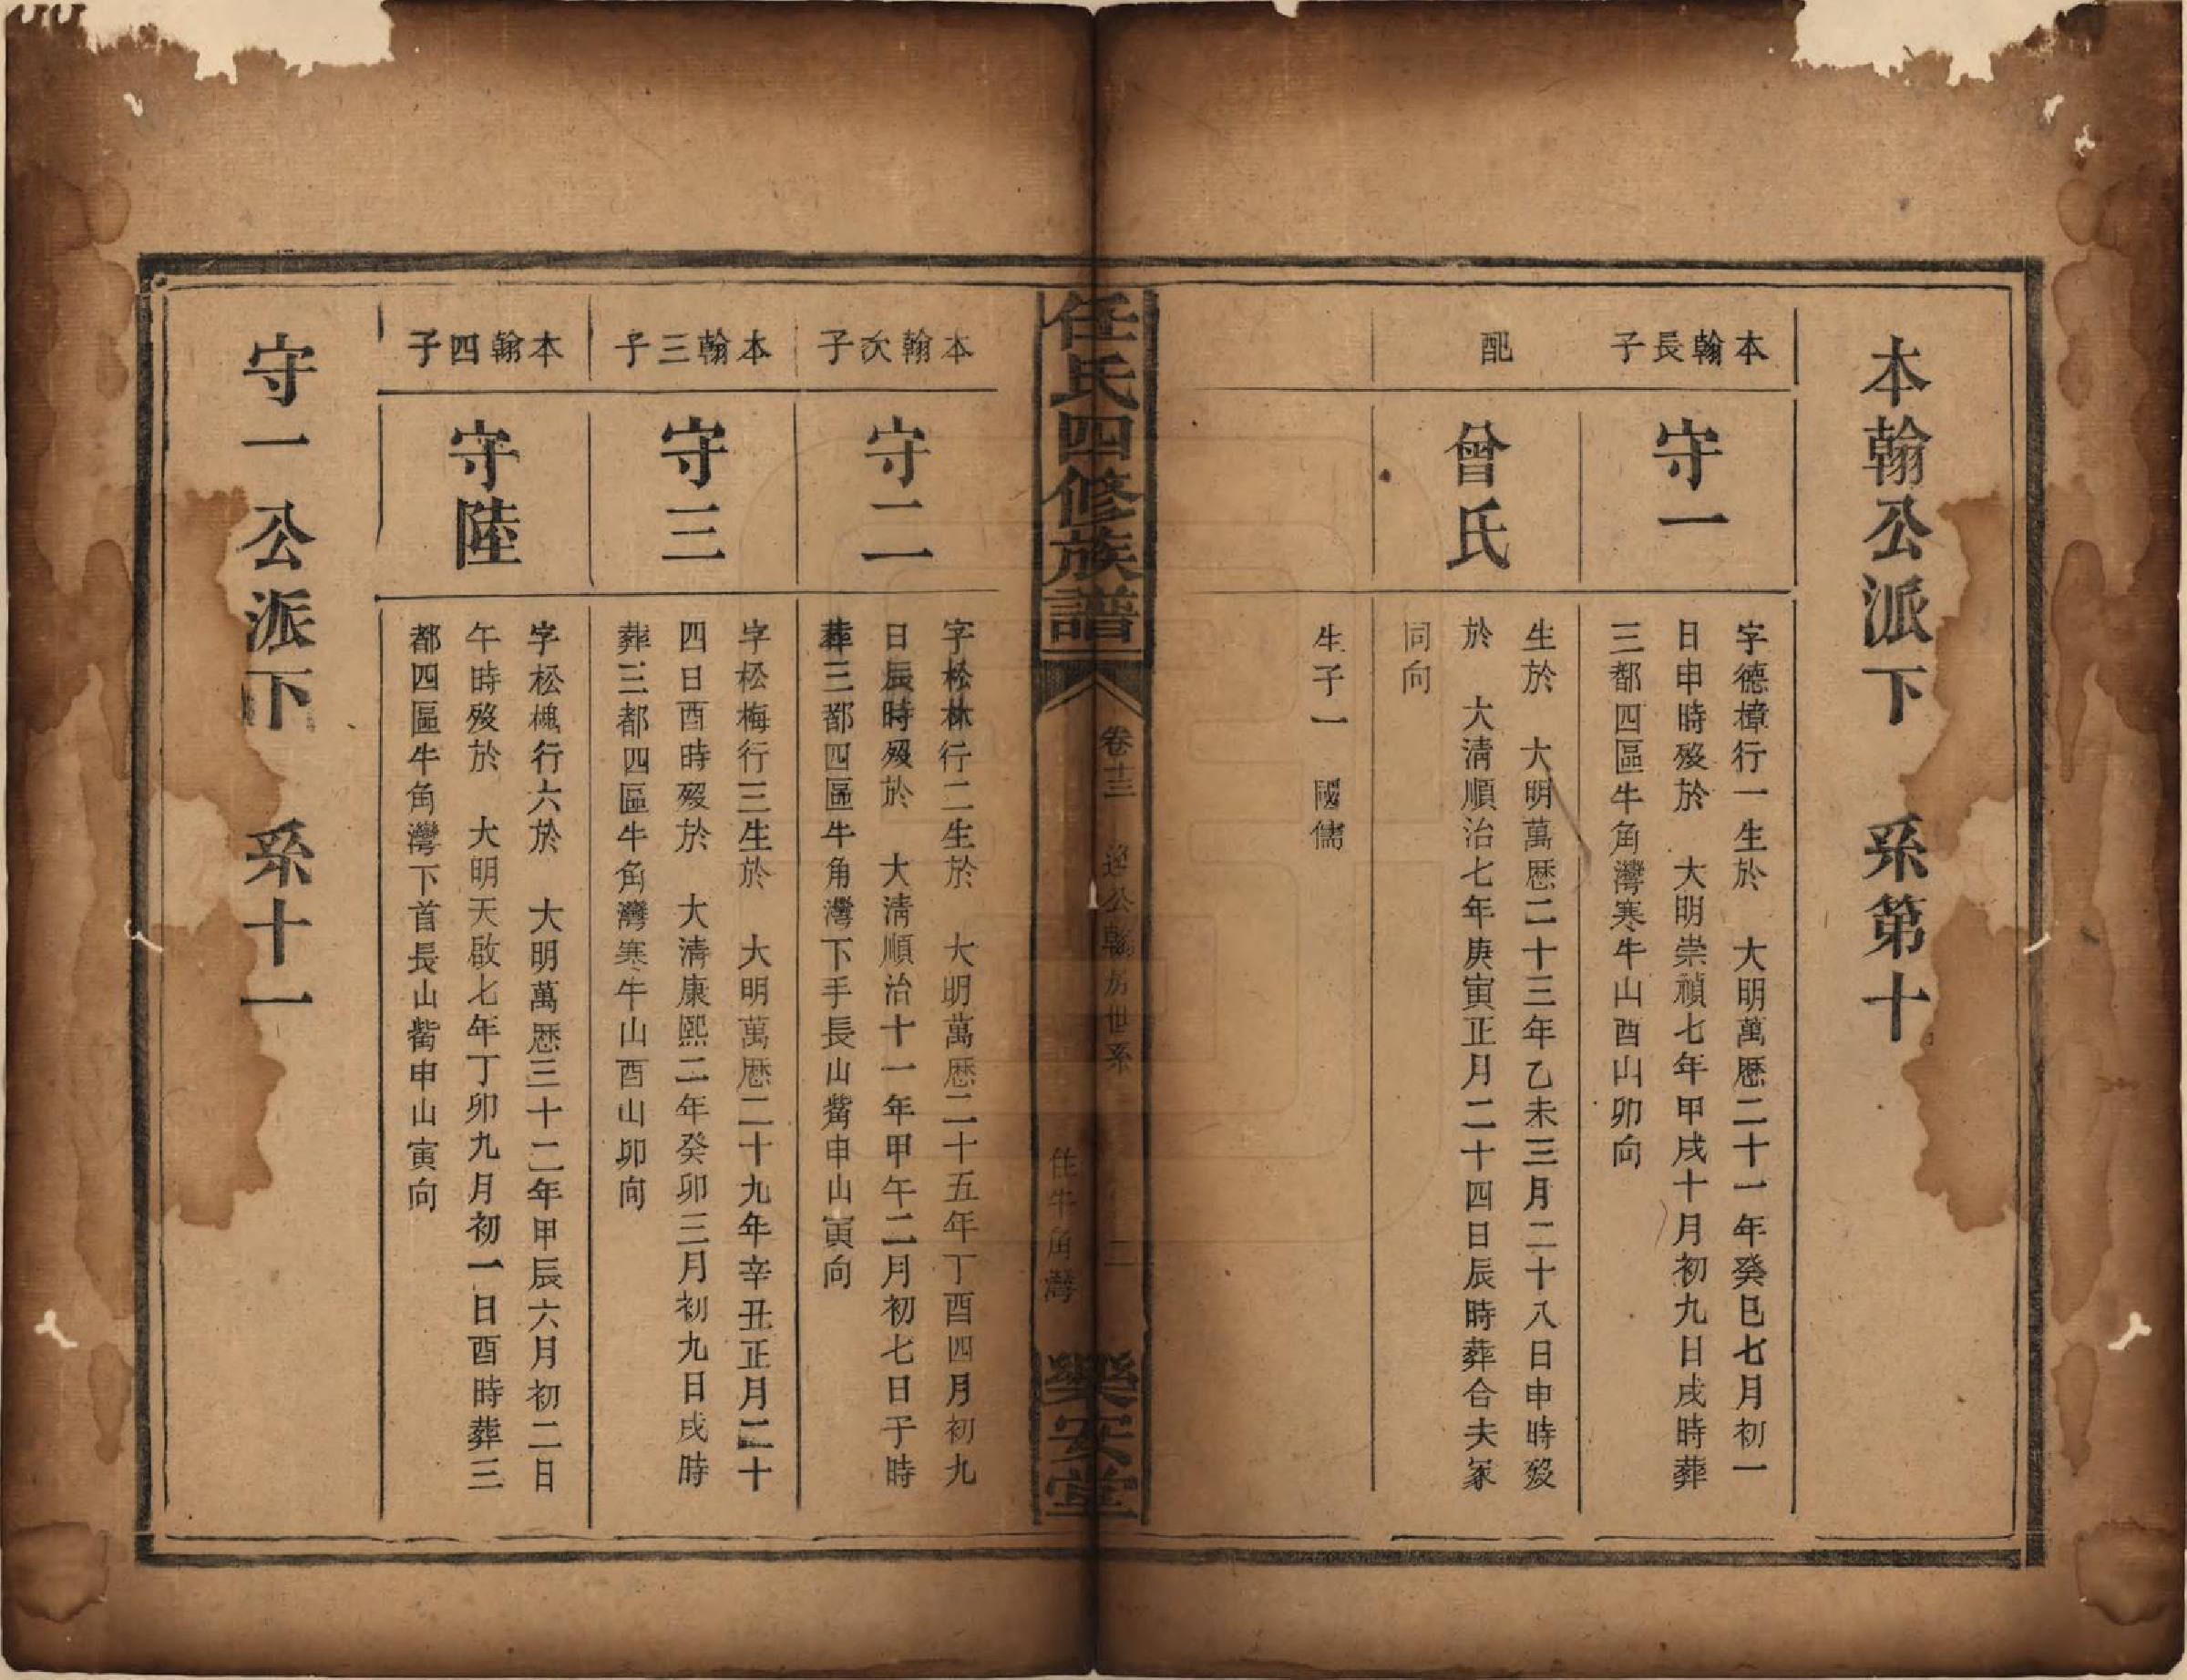 本翰公派下 系第十
本翰長子
守一
字德樟行一生於 大明萬歷二十一年癸巳七月初一
日申時殁於 大明崇禎七年甲戌十月初九日戌時葬
三都四區牛角灣寒牛山酉山卯向
配
曾氏
生於 大明萬歷二十三年乙未三月二十八日申時殁
於 大清順治七年庚寅正月二十四日辰時葬合夫冢
同向
生子一 國儒
任氏四修族譜
卷十三
公翰房世系
二
住牛角灣
樂安堂
本翰次子
守二
字松林行二生於 大明萬歷二十五年丁酉四月初九
日辰時殁於 大清順治十一年甲午二月初七日于時
葬三都四區牛角灣下手長山觜申山寅向
本翰三子
守三
字松梅行三生於 大明萬歷二十九年辛丑正月二十
四日酉時殁於 大清康熙二年癸卯三月初九日戌時
葬三都四區牛角灣寒牛山酉山卯向
本翰四子
守陸
字松槐行六於 大明萬歷三十二年甲辰六月初二日
午時殁於 大明天啟七年丁卯九月初一日酉時葬三
都四區牛角灣下首長山觜申山寅向
守一公派下 系十一